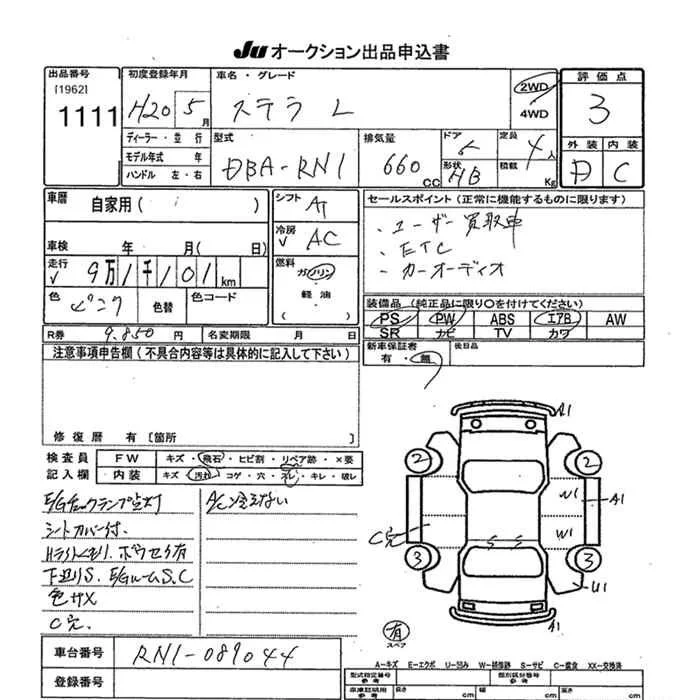 Ju オークション出品申込書
出品番号
[1962]
1111
初度登録年月
H20 5月
車名・グレード
ステラ L
2WD
4WD
評価点
3
ディーラー・並行
モデル年式 年
ハンドル 左・右
型式
DBA-RN1
排気量
660 CC
ドア
5
形状
HB
定員
4人
積載
Kg
外装 内装
D C
車歴 自家用( )
車検 年 月( 日)
走行 9万1千101km
色 ピンク 色替 色コード
シフト
AT
冷房
AC
燃料
ガソリン
軽油
( )
セールスポイント(正常に機能するものに限ります)
・ユーザー買取車
・ETC
・カーオーディオ
装備品(純正品に限り○を付けてください)
PS PW ABS エアB AW
SR ナビ TV カワ
R券 9,850円 名変期限 月 日
新車保証書
有・無
後日品
注意事項申告欄(不具合内容等は具体的に記入して下さい)
修復歴 有 〔箇所 〕
検査員 FW キズ・飛石・ヒビ割・リペア跡・×要
記入欄 内装 キズ・汚れ・コゲ・穴・スレ・キレ・破レ
E/Gチェックランプ点灯
シートカバー付.
Hライトくもり.ボウセイ有
下廻りS.E/GルームS.C
色サメ
C穴.
ACひえない
A1
2
2
W1
A1
W1
C穴
3
3
U1
A1
有
スペア
車台番号 RN1-089044
登録番号
A-キズ E-エクボ U-凹み W-補修跡 S-サビ C-腐食 XX-交換済
型式指定番号
参考
類別区分番号
参考
車庫証明用
参考
長さ cm
幅 cm
高さ cm